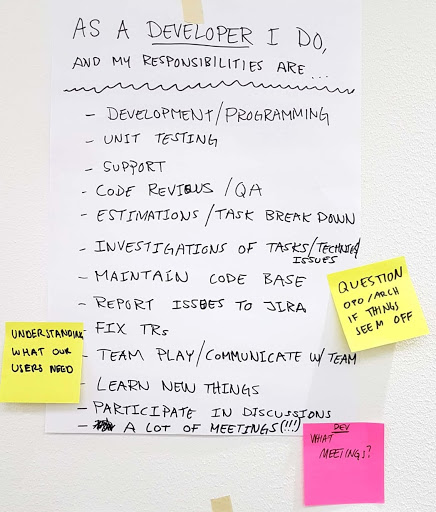 AS A DEVELOPER I DO,
AND MY RESPONSIBILITIES ARE...
- DEVELOPMENT/PROGRAMMING
- UNIT TESTING
- SUPPORT
- CODE REVIEWS/QA
- ESTIMATIONS/TASK BREAK DOWN
- INVESTIGATIONS OF TASKS/TECHNICAL/
ISSUES
- MAINTAIN CODE BASE
- REPORT ISSUES TO JIRA
- FIX TRs
- TEAM PLAY/COMMUNICATE W/ TEAM
- LEARN NEW THINGS
- PARTICIPATE IN DISCUSSIONS
- A LOT OF MEETINGS(!!!)
UNDERSTANDING
WHAT OUR
USERS NEED
QUESTION
OPO/ARCH
IF THINGS
SEEM OFF
DEV
WHAT
MEETINGS?